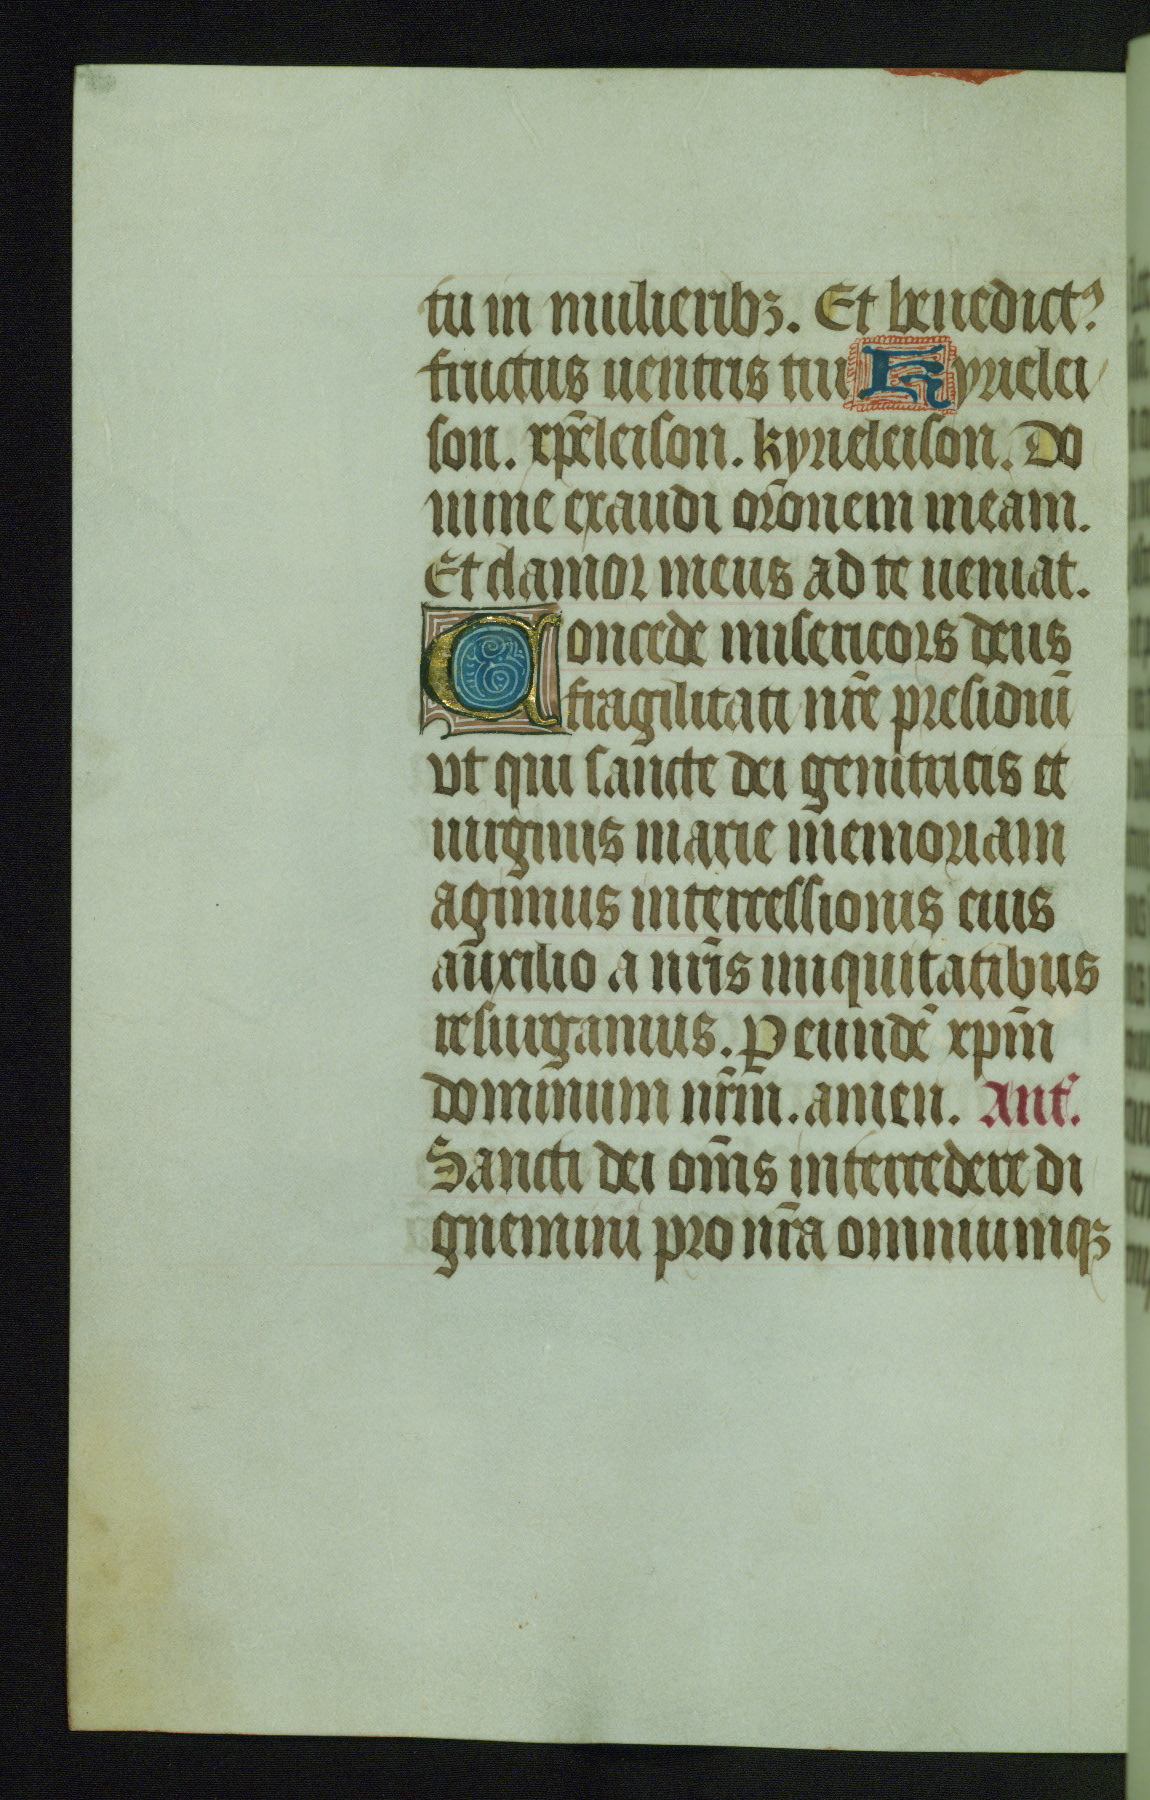 tu in mulieribꝫ. Et benedictꝰ
fructus uentris tui Kyrielei
son. xp̄eleison. kyrieleison. Do
mine exaudi or̄onem meam.
Et clamor meus ad te ueniat.
Concede misericors deus
fragilitati nr̄e presidiū
vt qui sancte dei genitricis et
uirginis marie memoriam
agimus intercessionis eius
auxilio a nr̄is iniquitatibus
resurgamus. Ꝑ eundē xp̄m
dominum nr̄m. amen. Ant̄.
Sancti dei om̄s intercedere di
gnemini pro nr̄a omniumqꝫ